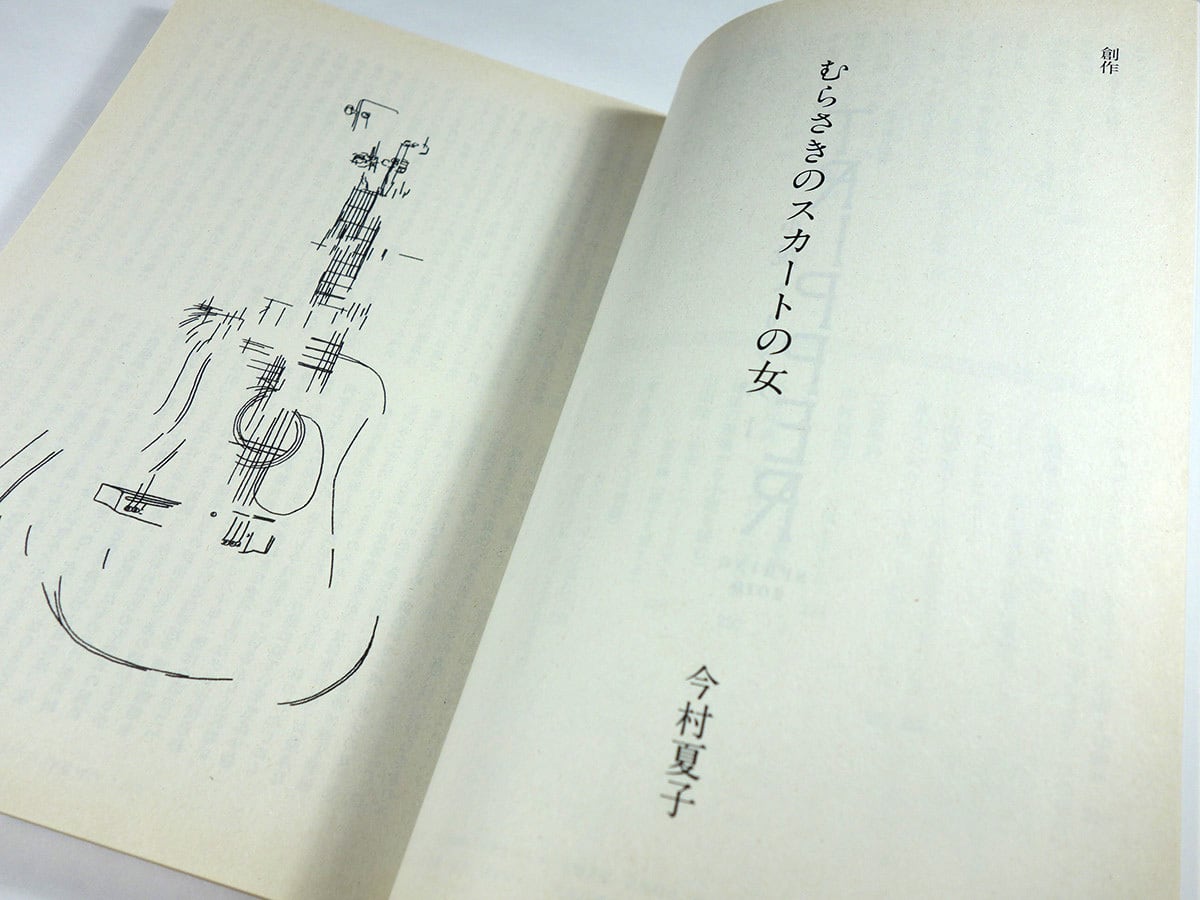 創作
むらさきのスカートの女
今村夏子